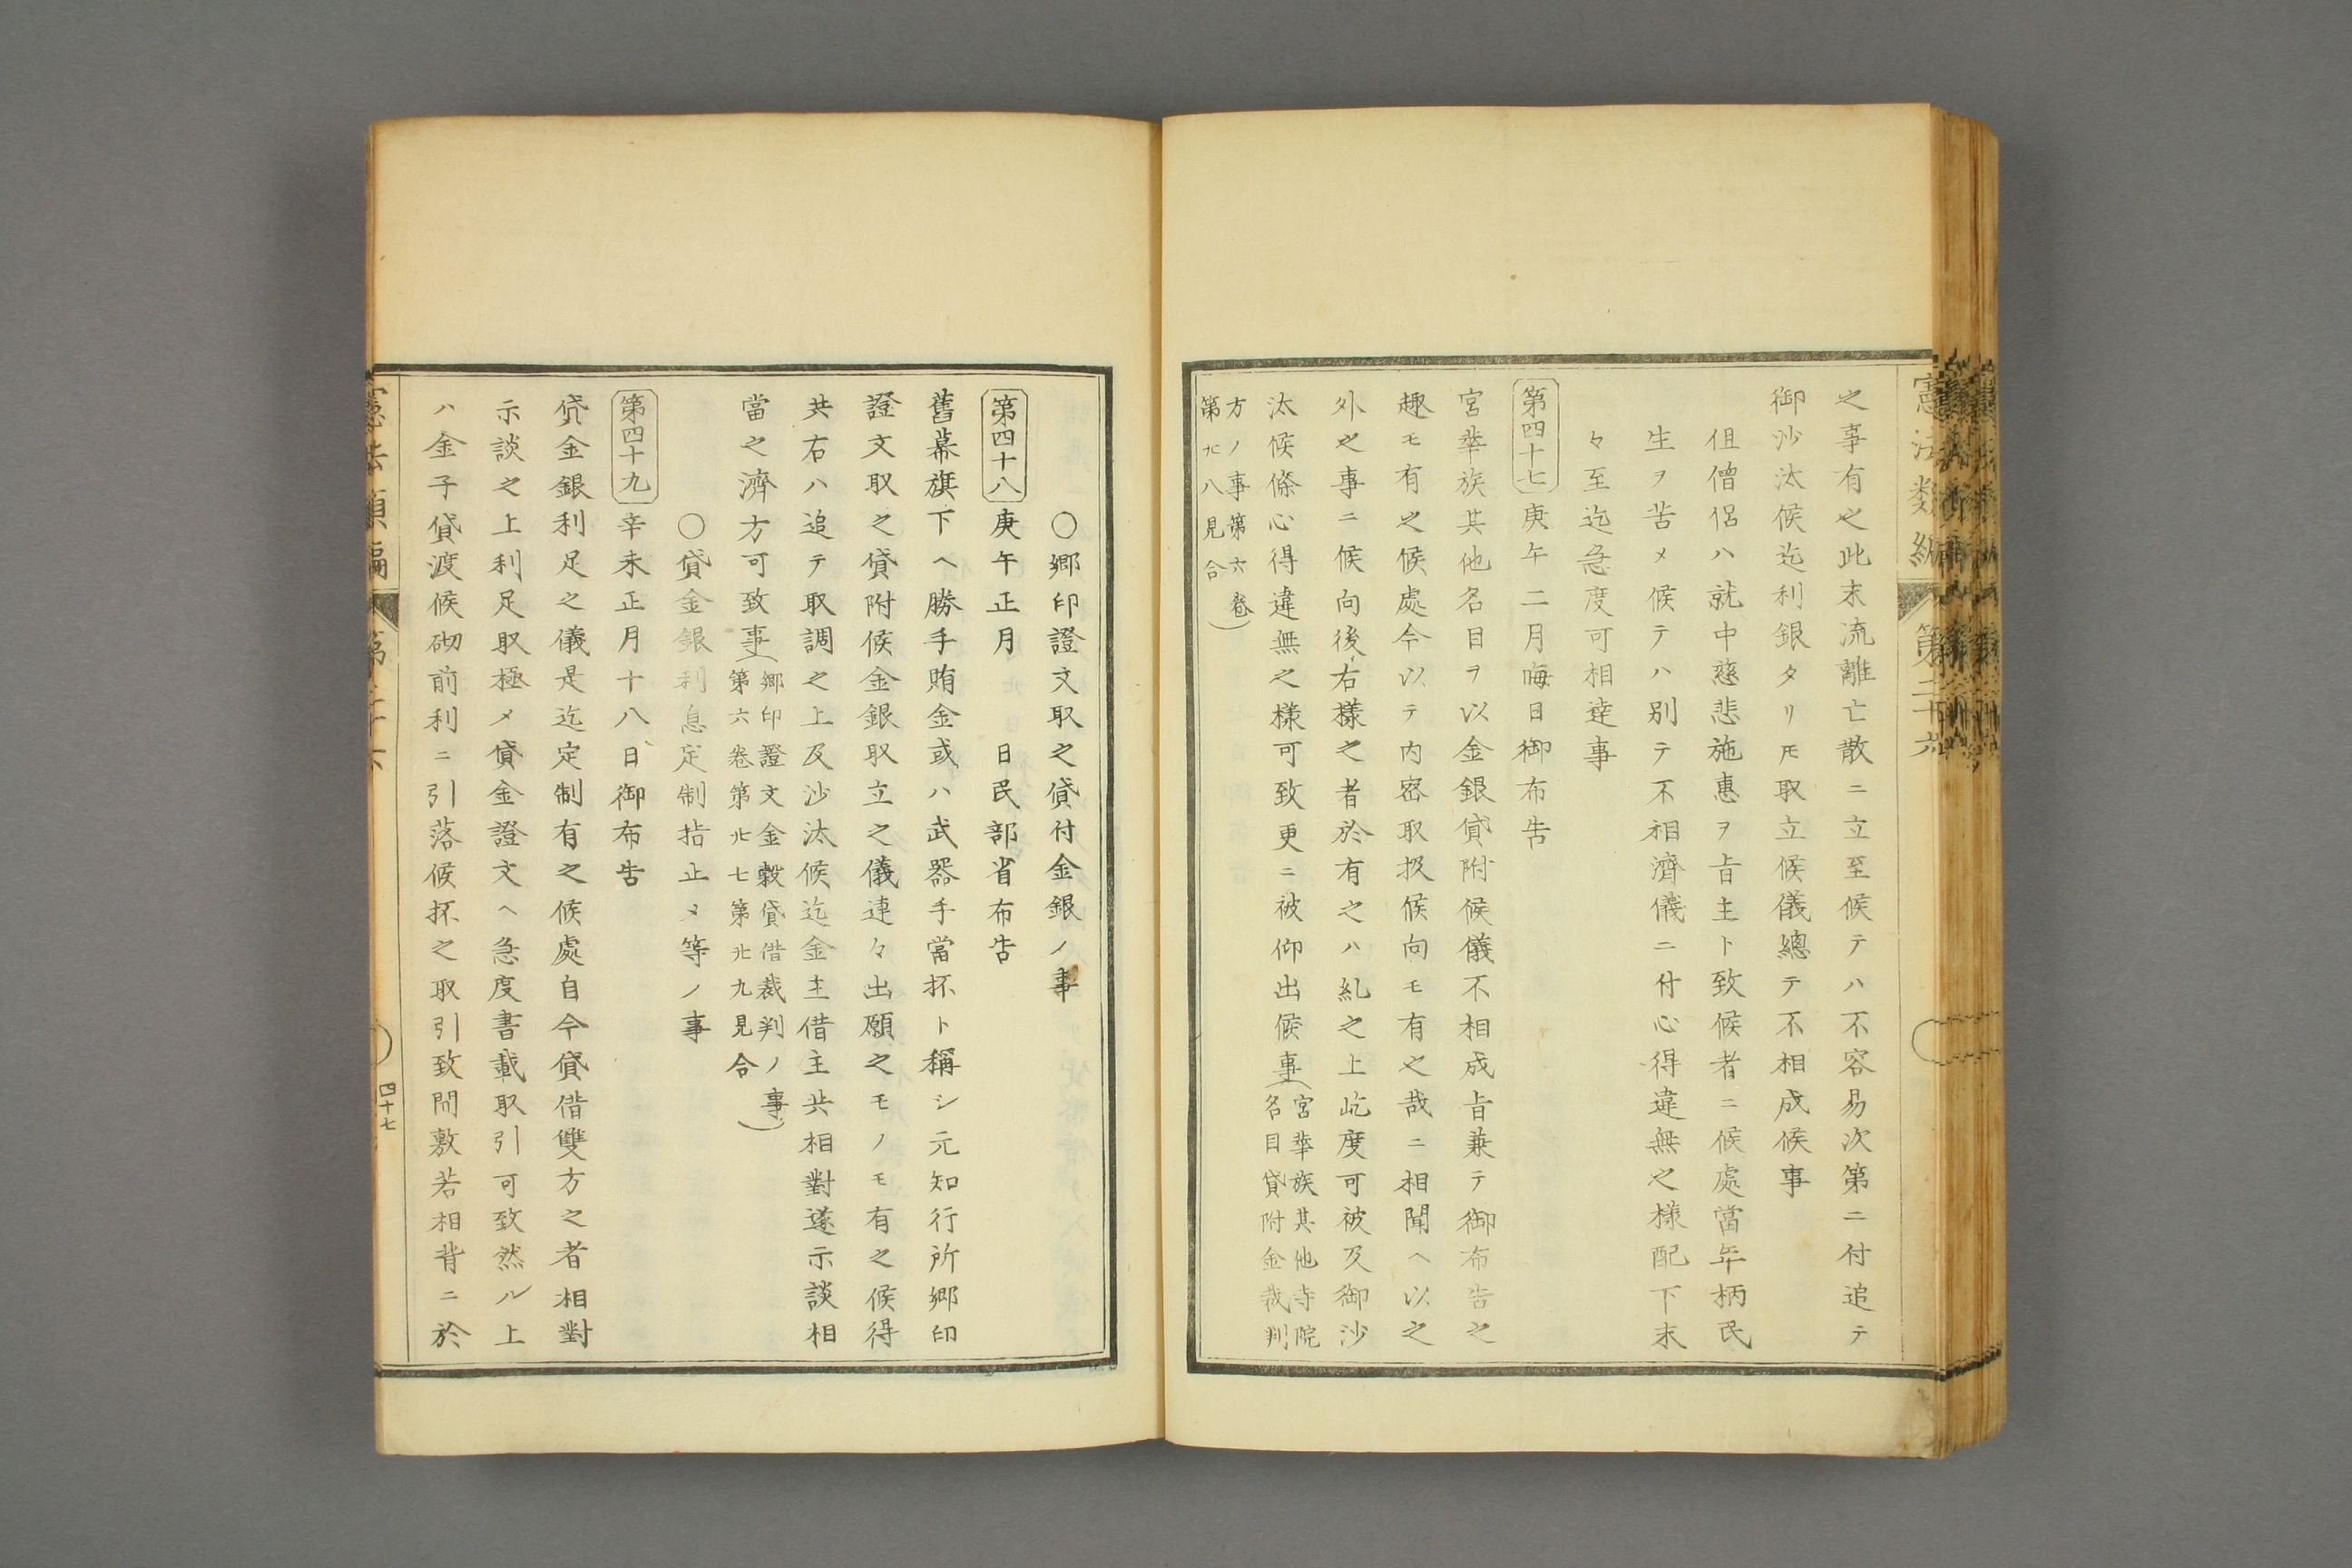 憲法類編 第二十六
之事有之此末流離亡散ニ立至候テハ不容易次第ニ付追テ
御沙汰候迄利銀タリ𪜈取立候儀總テ不相成候事
但僧侶ハ就中慈悲施惠ヲ旨主ト致候者ニ候處當年柄民
生ヲ苦メ候テハ別テ不相濟儀ニ付心得違無之樣配下末
々至迄急度可相達事
第四十七 庚午二月晦日御布告
宮華族其他名目ヲ以金銀貸附候儀不相成旨兼テ御布告之
趣モ有之候處今以テ内密取扱候向モ有之哉ニ相聞ヘ以之
外之事ニ候向後右樣之者於有之ハ糺之上屹度可被及御沙
汰候條心得違無之樣可致更ニ被仰出候事(宮華族其他寺院
名目貸附金裁判
方ノ事第六卷
第廿八見合)
〇郷印證文取之貸付金銀ノ事
第四十八 庚午正月 日民部省布告
舊幕旗下ヘ勝手賄金或ハ武器手當抔ト稱シ元知行所郷印
證文取之貸附候金銀取立之儀連々出願之モノモ有之候得
共右ハ追テ取調之上及沙汰候迄金主借主共相對遂示談相
當之濟方可致事(郷印證文金穀貸借裁判ノ事
第六卷第廿七第廿九見合)
〇貸金銀利息定制指止メ等ノ事
第四十九 辛未正月十八日御布告
貸金銀利足之儀是迄定制有之候處自今貸借雙方之者相對
示談之上利足取極メ貸金證文ヘ急度書載取引可致然ル上
ハ金子貸渡候砌前利ニ引落候抔之取引致間敷若相背ニ於
憲法類編 第二十六
四十七